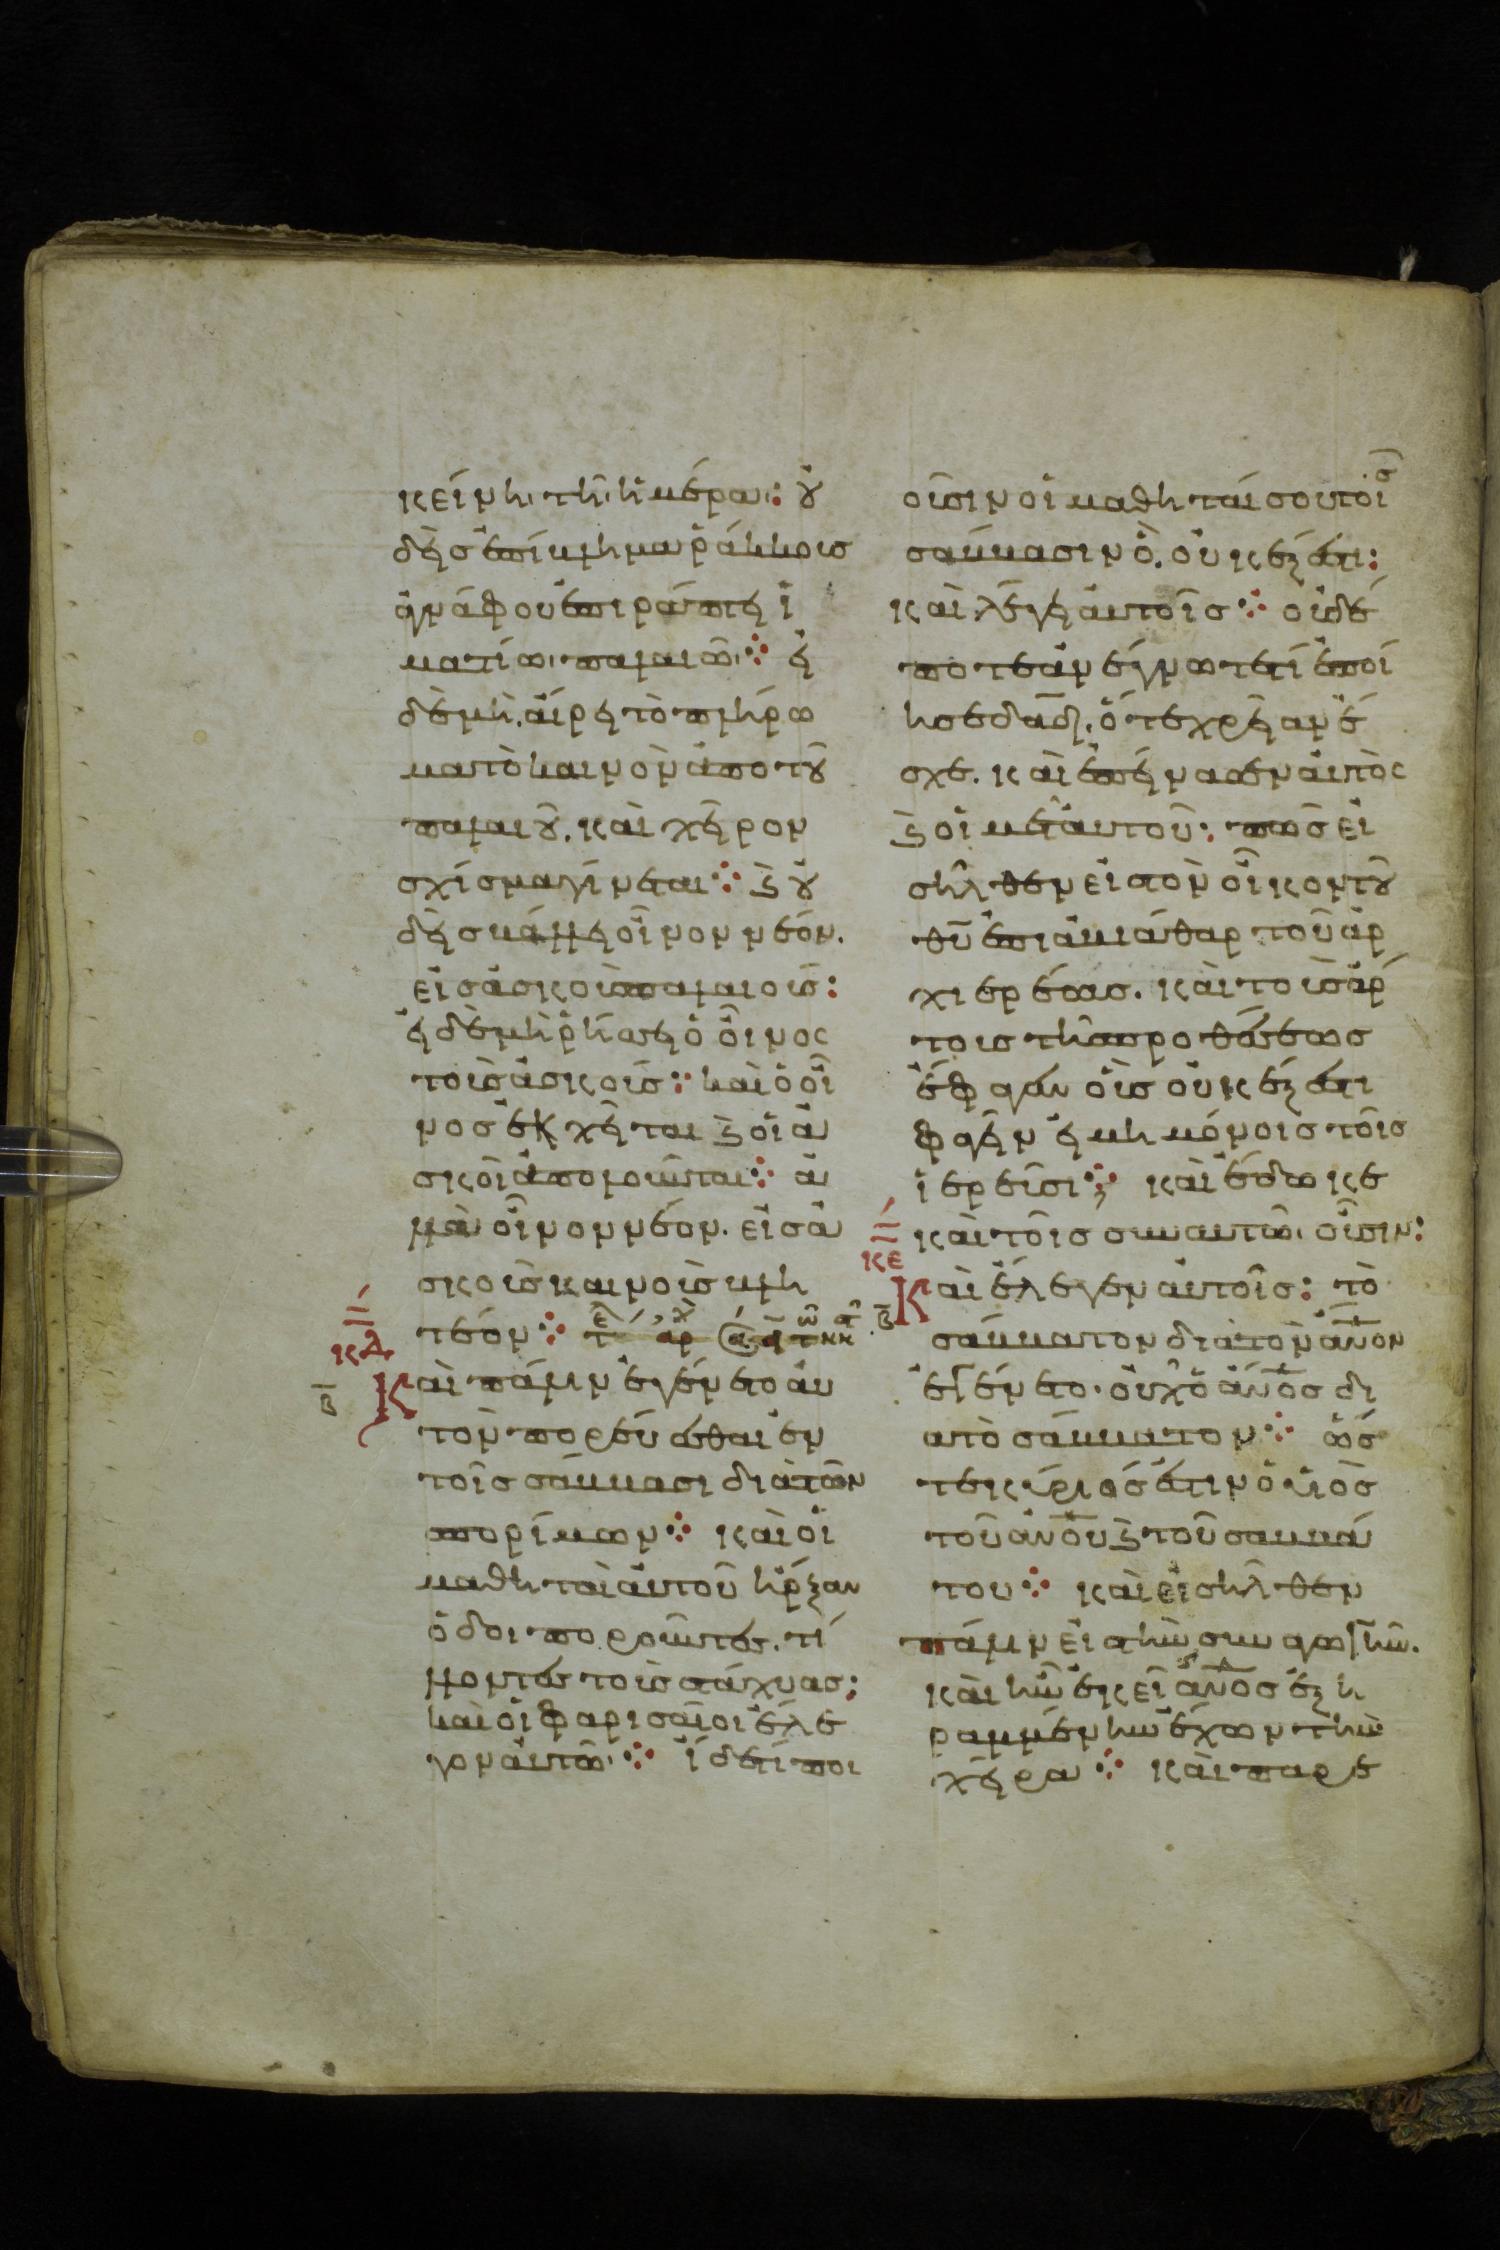 κείνη τῆ ἡμέρα: οὐ
δεὶσ ἐπίβλημα ῥάκκουσ
ἀγνάφου ἐπιράπτει ἱ
ματίω παλαιῶ· εἰ
δὲ μὴ, αἴρει τὸ πλήρω
μα τὸ καινὸν ἀπὸ τοῦ
παλαιοῦ. καὶ χεῖρον
σχίσμα γίνεται· καὶ οὐ
δεὶσ βάλλει οἶνον νέον.
εἰσ ἀσκοὺσ παλαιούσ:
εἰ δὲ μὴ ῥήσσει ὁ οἶνος
τοὺσ ἀσκούσ: καὶ ὁ οἶ
νοσ ἐκχεῖται καὶ οἱ ἀ
σκοὶ ἀπολοῦνται· ἀλ
λὰ οἶνον νέον. εἰσ ἀ
σκοὺσ καινοὺσ βλη
τέον·
κδ
β Καὶ πάλιν ἐγένετο αὐ
τὸν πορεύεσθαι ἐν
τοῖσ σάββασι διὰ τῶν
σπορίμων· καὶ οἱ
μαθηταὶ αὐτοῦ ἤρξαν
ὁδοιποροῦντεσ. τί
λλοντεσ τοὺσ στάχυασ:
καὶ οἱ φαρισαῖοι ἔλε
γον αὐτῶ· ἴδε τί ποι
οῦσιν οἱ μαθηταί σου τοῖσ
σάββασιν ὃ. οὐκ ἔξεστι:
καὶ λέγει αὐτοῖσ· οὐδέ
ποτε ἀνέγνωτε τί ἐποί
ησε δαδ, ὅτε χρείαν ἔ
σχε. καὶ ἐπείνασεν αὐτὸς
καὶ οἱ μετ' αὐτοῦ: πῶσ εἰ
σῆλθεν εἰσ τὸν οἶκον τοῦ
θυ ἐπὶ ἀβιάθαρ τοῦ ἀρ
χιερέωσ. καὶ τοὺσ ἄρ
τουσ τῆσ προθέσεωσ
ἔφαγεν οὓσ οὐκ ἔξεστι
φαγεῖν εἰ μὴ μόνοισ τοῖσ
ἱερεῦσι· καὶ ἔδωκε
καὶ τοῖσ συν αυτῶ οὖσιν:
κε
β Καὶ ἔλεγεν αὐτοῖσ: τὸ
σάββατον διὰ τὸν ἀνον
ἐγένετο. οὐχ ὁ ἀνοσ δι
α τὸ σάββατον· ὥσ
τε κύριόσ ἐστιν ὁ υἱὸσ
τοῦ ἀνου καὶ τοῦ σαββά
του· καὶ εἰσῆλθεν
πάλιν εἰσ τὴν συναγωγήν.
καὶ ἦν ἐκεῖ ἀνοσ ἐξη
ραμμένην ἔχων τὴν
χεῖρα· καὶ παρε